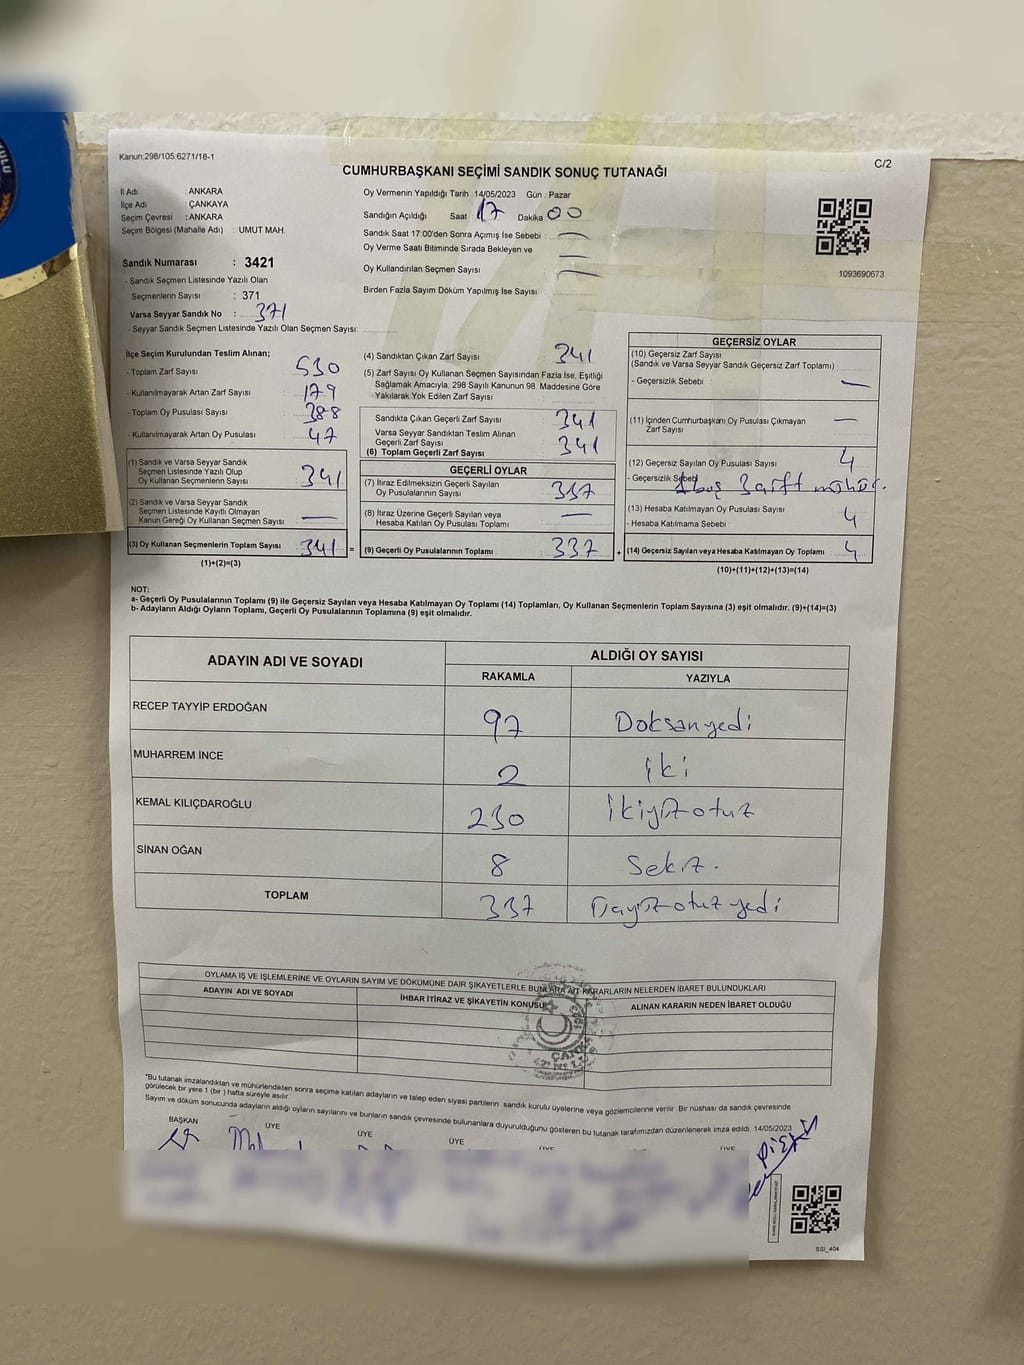 Kanun;298/105.6271/18-1
C/2
CUMHURBAŞKANI SEÇİMİ SANDIK SONUÇ TUTANAĞI
İl Adı : ANKARA
İlçe Adı : ÇANKAYA
Seçim Çevresi : ANKARA
Seçim Bölgesi (Mahalle Adı) : UMUT MAH.
Oy Vermenin Yapıldığı Tarih :14/05/2023 Gün : Pazar
Sandığın Açıldığı Saat : 17 Dakika : 00
Sandık Saat 17:00'den Sonra Açımış İse Sebebi : —
Oy Verme Saati Bitiminde Sırada Bekleyen ve
Oy Kullandırılan Seçmen Sayısı —
Birden Fazla Sayım Döküm Yapılmış İse Sayısı
1093690673
Sandık Numarası : 3421
- Sandık Seçmen Listesinde Yazılı Olan
Seçmenlerin Sayısı : 371
Varsa Seyyar Sandık No : 371
- Seyyar Sandık Seçmen Listesinde Yazılı Olan Seçmen Sayısı:
İlçe Seçim Kurulundan Teslim Alınan;
- Toplam Zarf Sayısı : 530
- Kullanılmayarak Artan Zarf Sayısı : 179
- Toplam Oy Pusulası Sayısı : 388
- Kullanılmayarak Artan Oy Pusulası : 47
(1) Sandık ve Varsa Seyyar Sandık
Seçmen Listesinde Yazılı Olup
Oy Kullanan Seçmenlerin Sayısı : 341
(2) Sandık ve Varsa Seyyar Sandık
Seçmen Listesinde Kayıtlı Olmayan
Kanun Gereği Oy Kullanan Seçmen Sayısı : —
(3) Oy Kullanan Seçmenlerin Toplam Sayısı : 341 =
(1)+(2)=(3)
(4) Sandıktan Çıkan Zarf Sayısı : 341
(5) Zarf Sayısı Oy Kullanan Seçmen Sayısından Fazla İse, Eşitliği
Sağlamak Amacıyla; 298 Sayılı Kanunun 98. Maddesine Göre
Yakılarak Yok Edilen Zarf Sayısı
Sandıkta Çıkan Geçerli Zarf Sayısı : 341
Varsa Seyyar Sandıktan Teslim Alınan
Geçerli Zarf Sayısı
(6) Toplam Geçerli Zarf Sayısı : 341
GEÇERLİ OYLAR
(7) İtiraz Edilmeksizin Geçerli Sayılan
Oy Pusulalarının Sayısı : 337
(8) İtiraz Üzerine Geçerli Sayılan veya
Hesaba Katılan Oy Pusulası Toplamı : —
(9) Geçerli Oy Pusulalarının Toplamı : 337 +
GEÇERSİZ OYLAR
(10) Geçersiz Zarf Sayısı
(Sandık ve Varsa Seyyar Sandık Geçersiz Zarf Toplamı) :
- Geçersizlik Sebebi : —
(11) İçinden Cumhurbaşkanı Oy Pusulası Çıkmayan
Zarf Sayısı —
(12) Geçersiz Sayılan Oy Pusulası Sayısı : 4
- Geçersizlik Sebebi : 1 boş 3 çift mühür.
(13) Hesaba Katılmayan Oy Pusulası Sayısı : 4
- Hesaba Katılmama Sebebi :
(14) Geçersiz Sayılan veya Hesaba Katılmayan Oy Toplamı : 4
(10)+(11)+(12)+(13)=(14)
NOT:
a- Geçerli Oy Pusulaları Toplamı (9) ile Geçersiz Sayılan veya Hesaba Katılmayan Oy Toplamı (14) Toplamları, Oy Kullanan Seçmenlerin Toplam Sayısına (3) eşit olmalıdır. (9)+(14)=(3)
b- Adayların Aldığı Oyların Toplamı, Geçerli Oy Pusulalarının Toplamına (9) eşit olmalıdır.
ADAYIN ADI VE SOYADI
ALDIĞI OY SAYISI
RAKAMLA YAZIYLA
RECEP TAYYİP ERDOĞAN 97 Doksanyedi
MUHARREM İNCE 2 iki
KEMAL KILIÇDAROĞLU 230 ikiyüzotuz
SİNAN OĞAN 8 Sekiz.
TOPLAM 337 Üçyüzotuzyedi
OYLAMA İŞ VE İŞLEMLERİNE VE OYLARIN SAYIM VE DÖKÜMÜNE DAİR ŞİKAYETLERLE BUNLARA AİT KARARLARIN NELERDEN İBARET BULUNDUKLARI
ADAYIN ADI VE SOYADI İHBAR İTİRAZ VE ŞİKAYETİN KONUSU ALINAN KARARIN NEDEN İBARET OLDUĞU
*Bu tutanak imzalandıktan ve mühürlendikten sonra seçime katılan adayların ve talep eden siyasi partilerin sandık kurulu üyelerine veya gözlemcilerine verilir. Bir nüshası da sandık çevresinde
görülecek bir yere 1 (bir ) hafta süreyle asılır.
Sayım ve döküm sonucunda adayların aldığı oyların sayılarını ve bunların sandık çevresinde bulunanlara duyurulduğunu gösteren bu tutanak tarafımızdan düzenlenerek imza edildi. 14/05/2023
BAŞKAN ÜYE ÜYE ÜYE ÜYE ÜYE
SSI_404